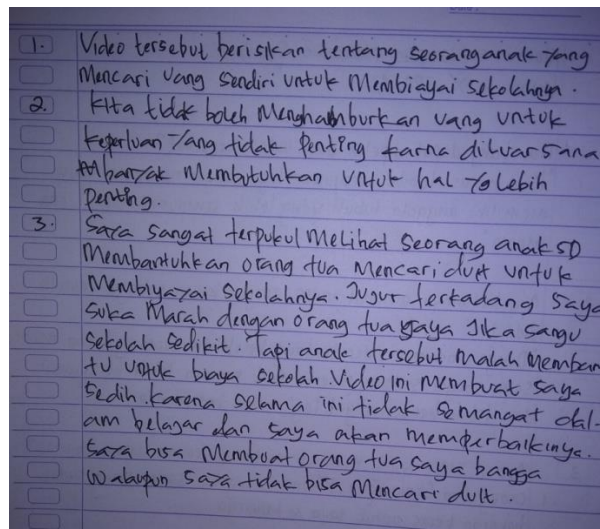 1. Video tersebut berisikan tentang seorang anak yang
Mencari Uang Sendiri untuk Membiayai sekolahnya.
2. kita tidak boleh Menghamburkan uang untuk
keperluan yang tidak Penting karna diluar sana
banyak Membutuhkan untuk hal yg Lebih
Penting.
3. Saya sangat terpukul Melihat Seorang anak SD
Membantuhkan orang tua Mencari duit untuk
Membiyayai sekolahnya. Jujur terkadang Saya
Suka Marah dengan orang tua saya Jika sangu
Sekolah Sedikit. Tapi anak tersebut Malah Memban
tu untuk biaya sekolah. Video ini membuat saya
Sedih. karena selama ini tidak semangat dal-
am belajar dan saya akan memperbaikinya.
Saya bisa Membuat orang tua saya bangga
Walaupun Saya tidak bisa Mencari duit.